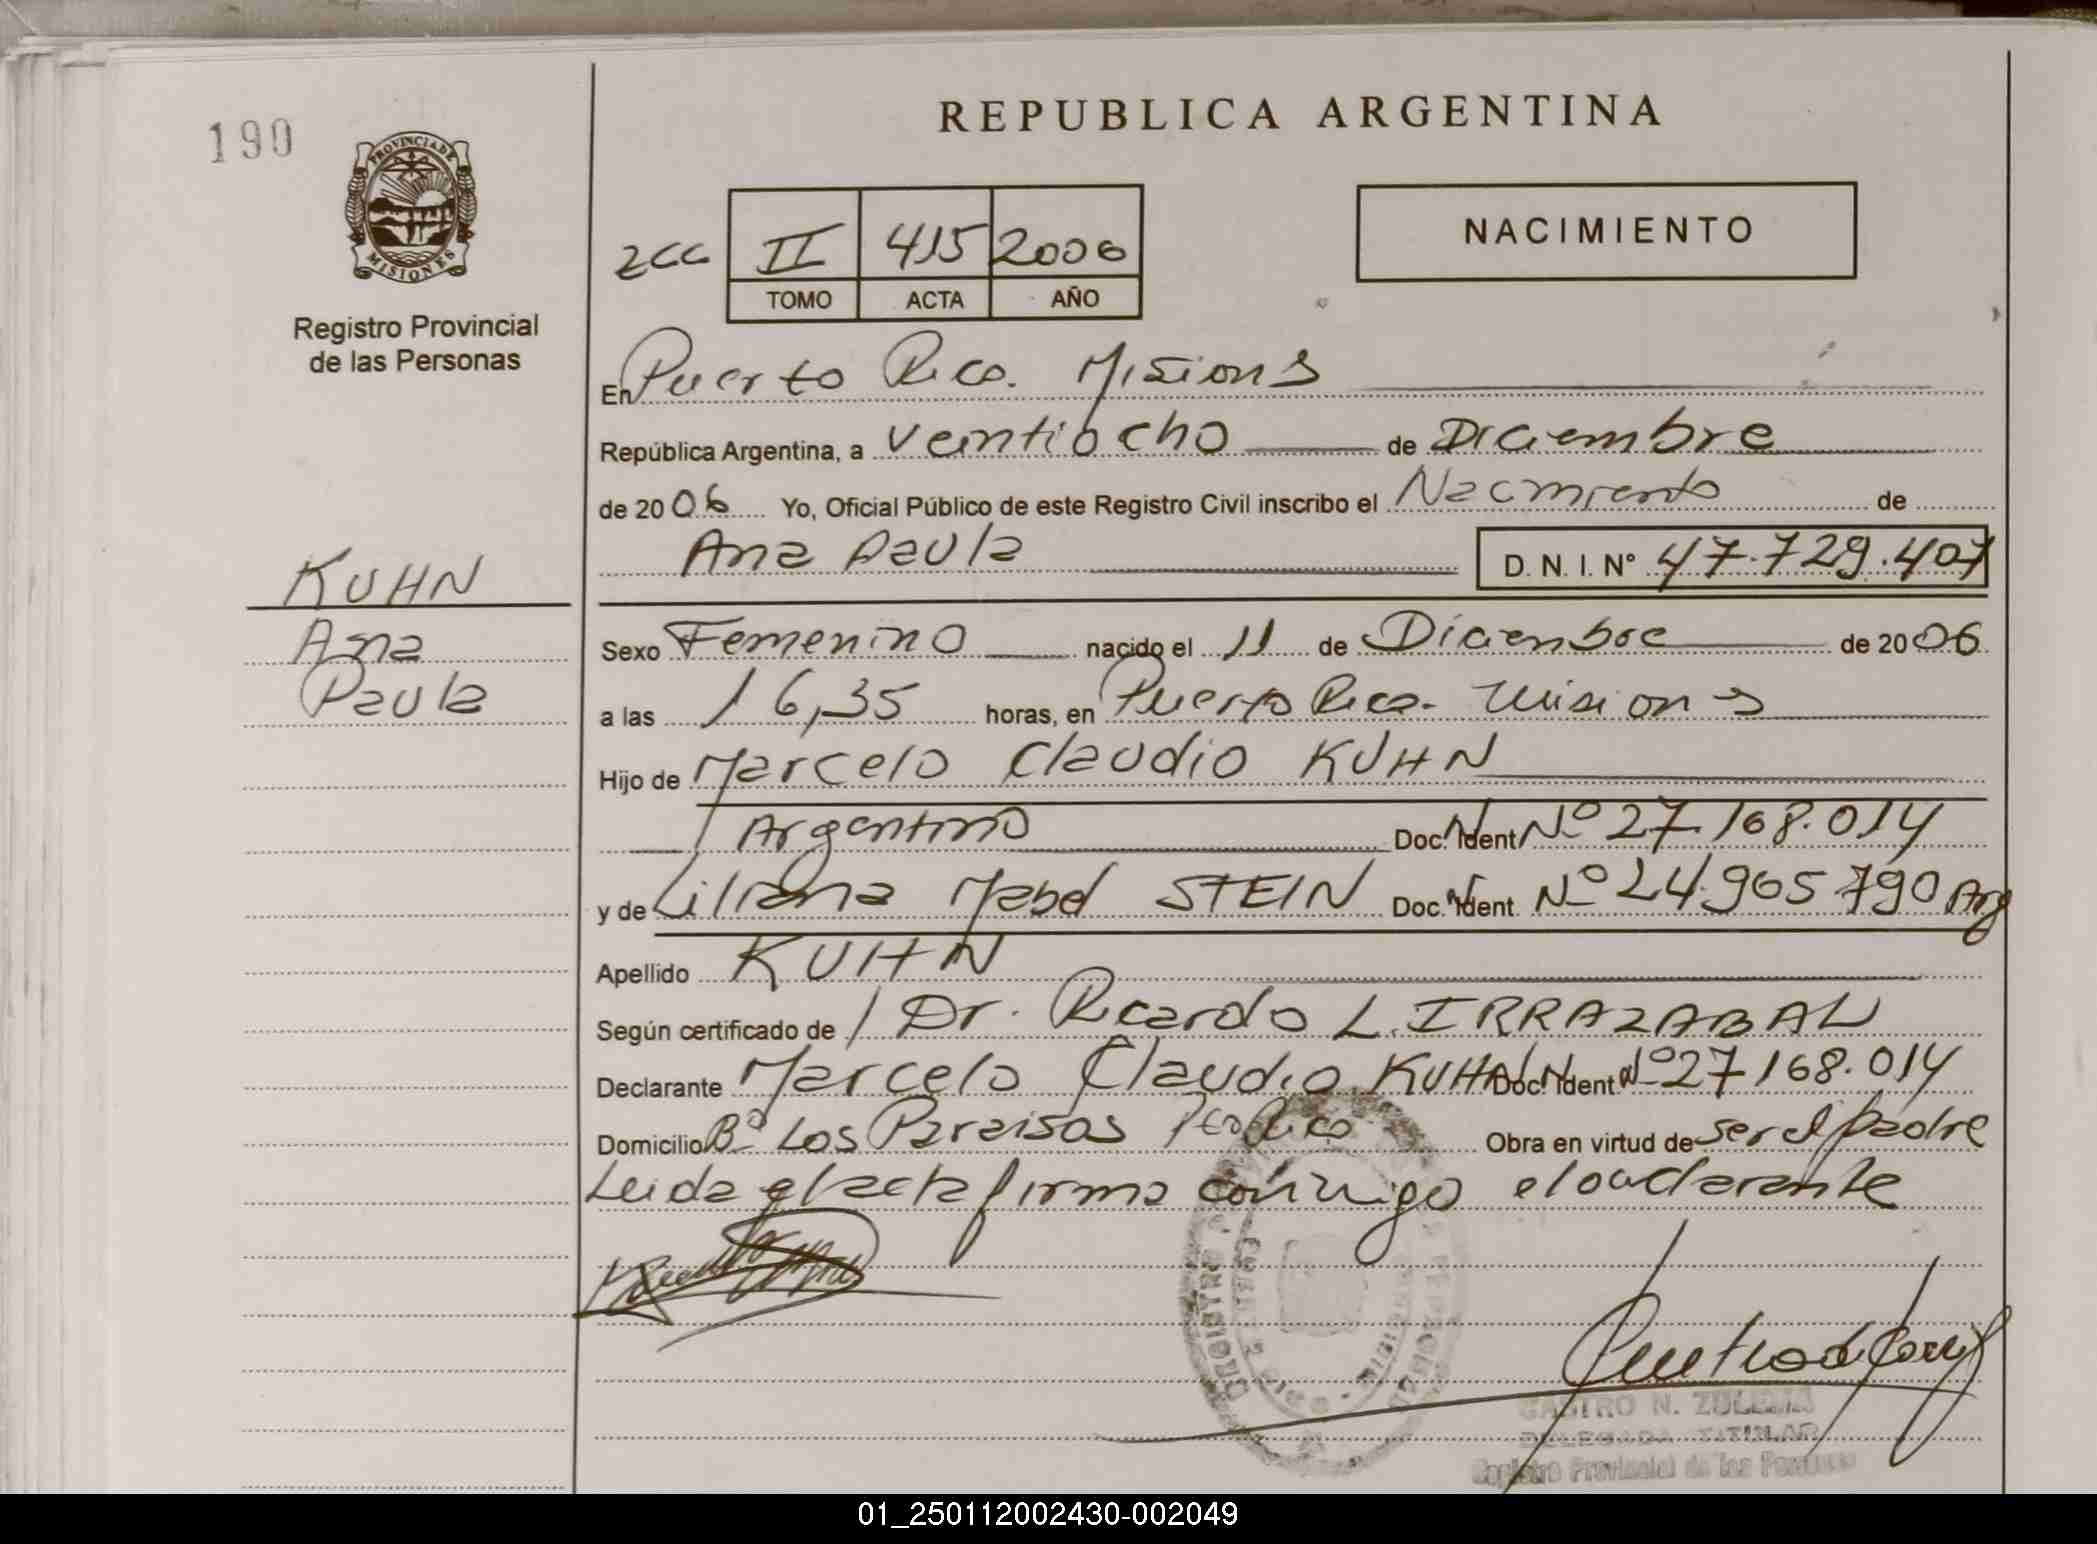 190
PROVINCIA DE
MISIONES
Registro Provincial
de las Personas
REPUBLICA ARGENTINA
2cc II 415 2006
TOMO ACTA AÑO
NACIMIENTO
En Puerto Rico. Misiones
República Argentina, a Veintiocho de Diciembre
de 2006 Yo, Oficial Público de este Registro Civil inscribo el Nacimiento de
Ana Paula D.N.I. Nº 47.729.407
KUHN
Ana
Paula
Sexo Femenino nacido el 11 de Diciembre de 2006
a las 16,35 horas, en Puerto Rico. Misiones
Hijo de Marcelo Claudio KUHN
Argentino Doc. Ident. Nº 27.168.014
y de Liliana Mabel STEIN Doc. Ident. Nº 24.965.790 Arg
Apellido KUHN
Según certificado de Dr. Ricardo L. IRRAZABAL
Declarante Marcelo Claudio KUHN Doc. Ident Nº 27.168.014
Domicilio Bº Los Paraisos Pto Rico Obra en virtud de ser el padre
Leida el acta firma conmigo el declarante
CASTRO N. ZULEMA
DELEGADA TITULAR
Registro Provincial de las Personas
01_250112002430-002049